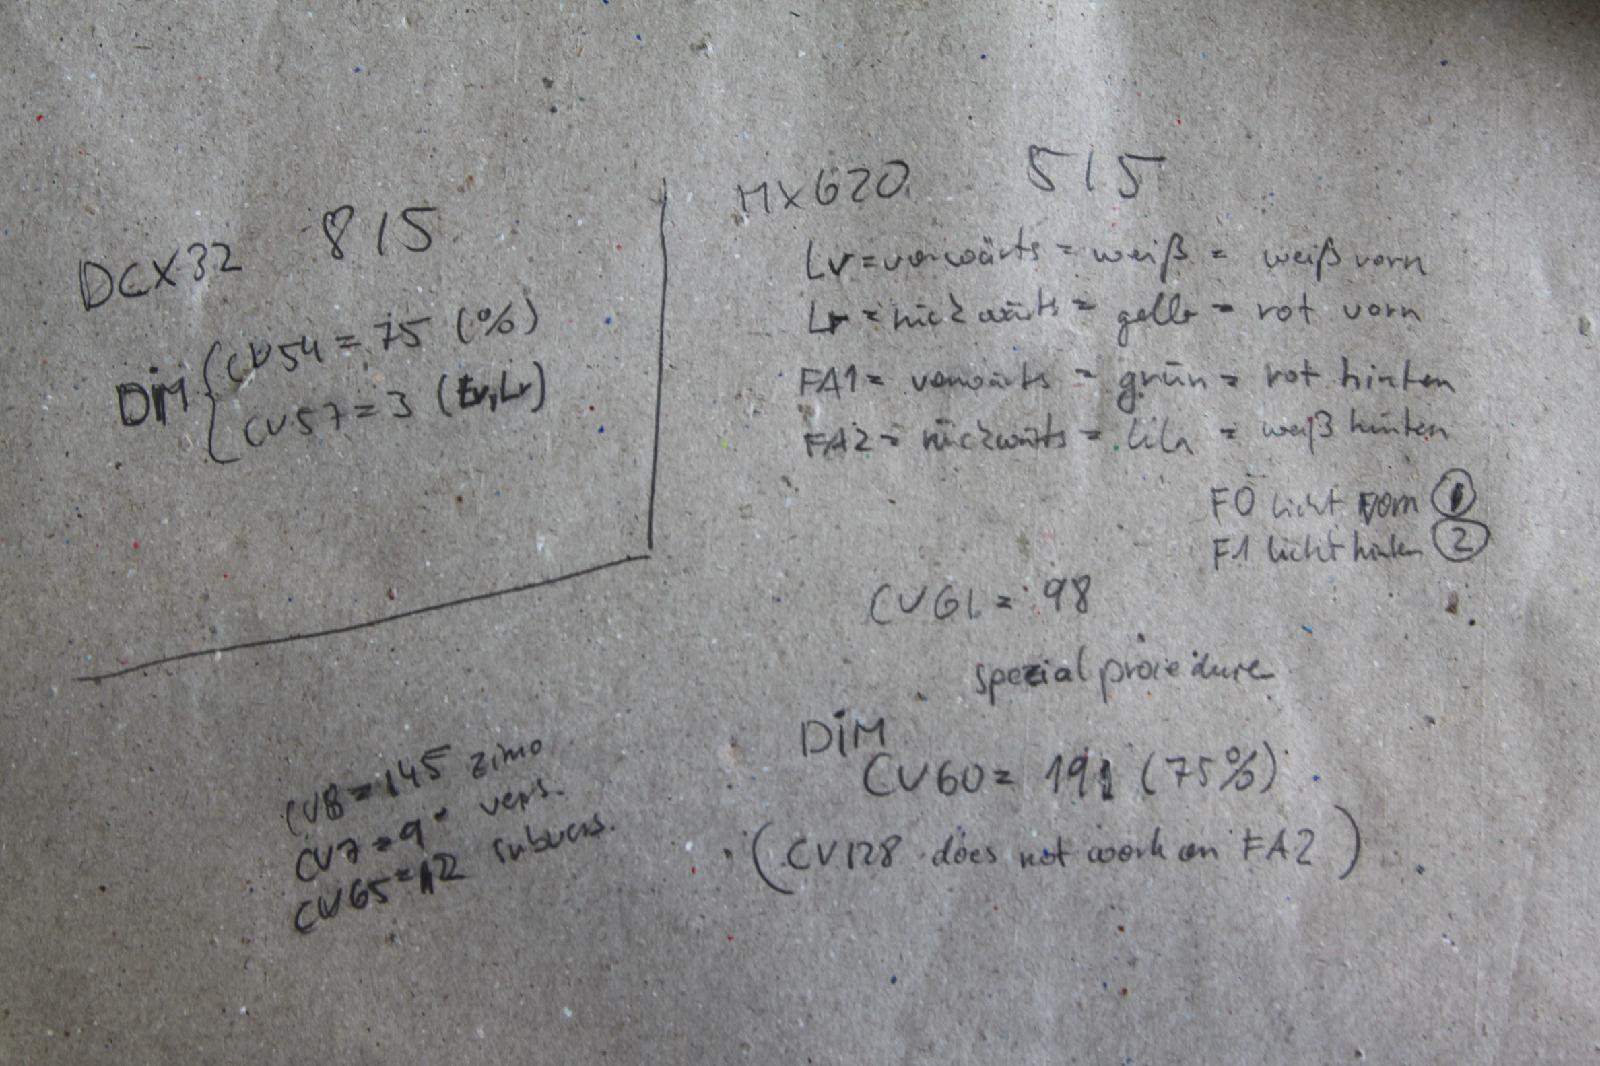 DCX32 815
DIM { CV54 = 75 (%)
CV57 = 3 (Lv,Lr)
MX620 515
Lv = vorwärts = weiß = weiß vorn
Lr = rückwärts = gelb = rot vorn
FA1 = vorwärts = grün = rot hinten
FA2 = rückwärts = lila = weiß hinten
F0 licht vorn 1
F1 licht hinten 2
CV61 = 98
spezial procedure
DIM
CV60 = 191 (75%)
(CV128 does not work on FA2)
CV8 = 145 zimo
CV7 = 9 vers.
CV65 = 12 subvers.